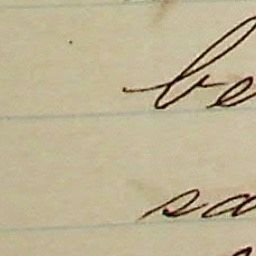 be
sa